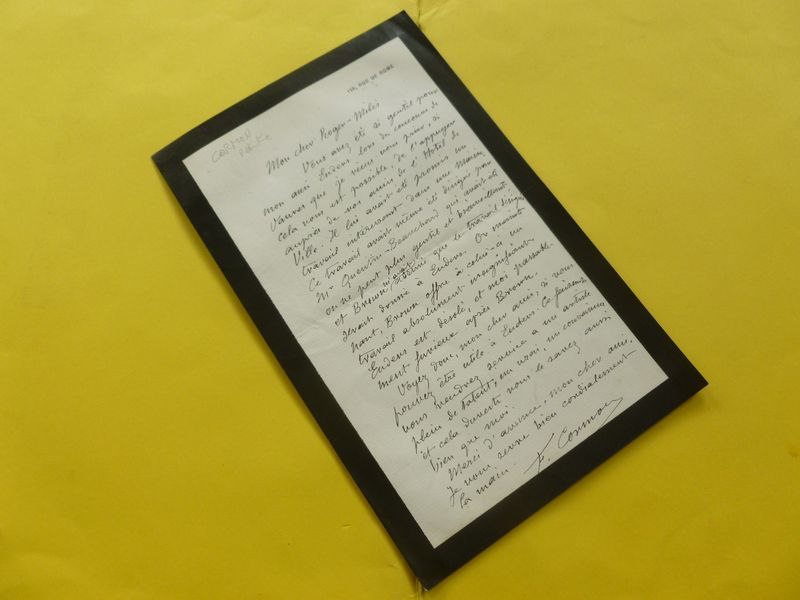 159, RUE DE ROME
CORMON
peintre
Mon cher Roger-Milès
Vous avez été si gentil pour
mon ami Eudens lors du concours de
Vannes que je viens vous prier, si
cela vous est possible, de l'appuyer
auprès de vos amis de l'Hotel de
Ville. Il lui avait été promis un
travail intéressant dans une Mairie
Ce travail avait même été désigné par
Mr Quentin-Beauchard qui avait été
on ne peut plus gentil et bienveillant
et Brown m'avait affirmé que le travail désigné
serait donné à Eudens. Or mainte
nant, Brown offre à celui-ci un
travail absolument insignifiant.
Eudens est désolé, et moi passable-
ment furieux après Brown.
Voyez donc, mon cher ami, si vous
pouvez être utile à Eudens. Ce faisant
vous rendrez service à un artiste
plein de talent, un vrai, un convaincu
et cela vous le savez aussi
bien que moi.
Merci d'avance, mon cher ami.
Je vous serre bien cordialement
la main. F. Cormon